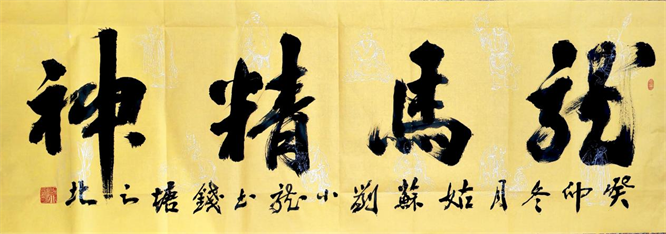 龍馬精神
癸卯冬月姑蘇劉小龍书錢塘之北